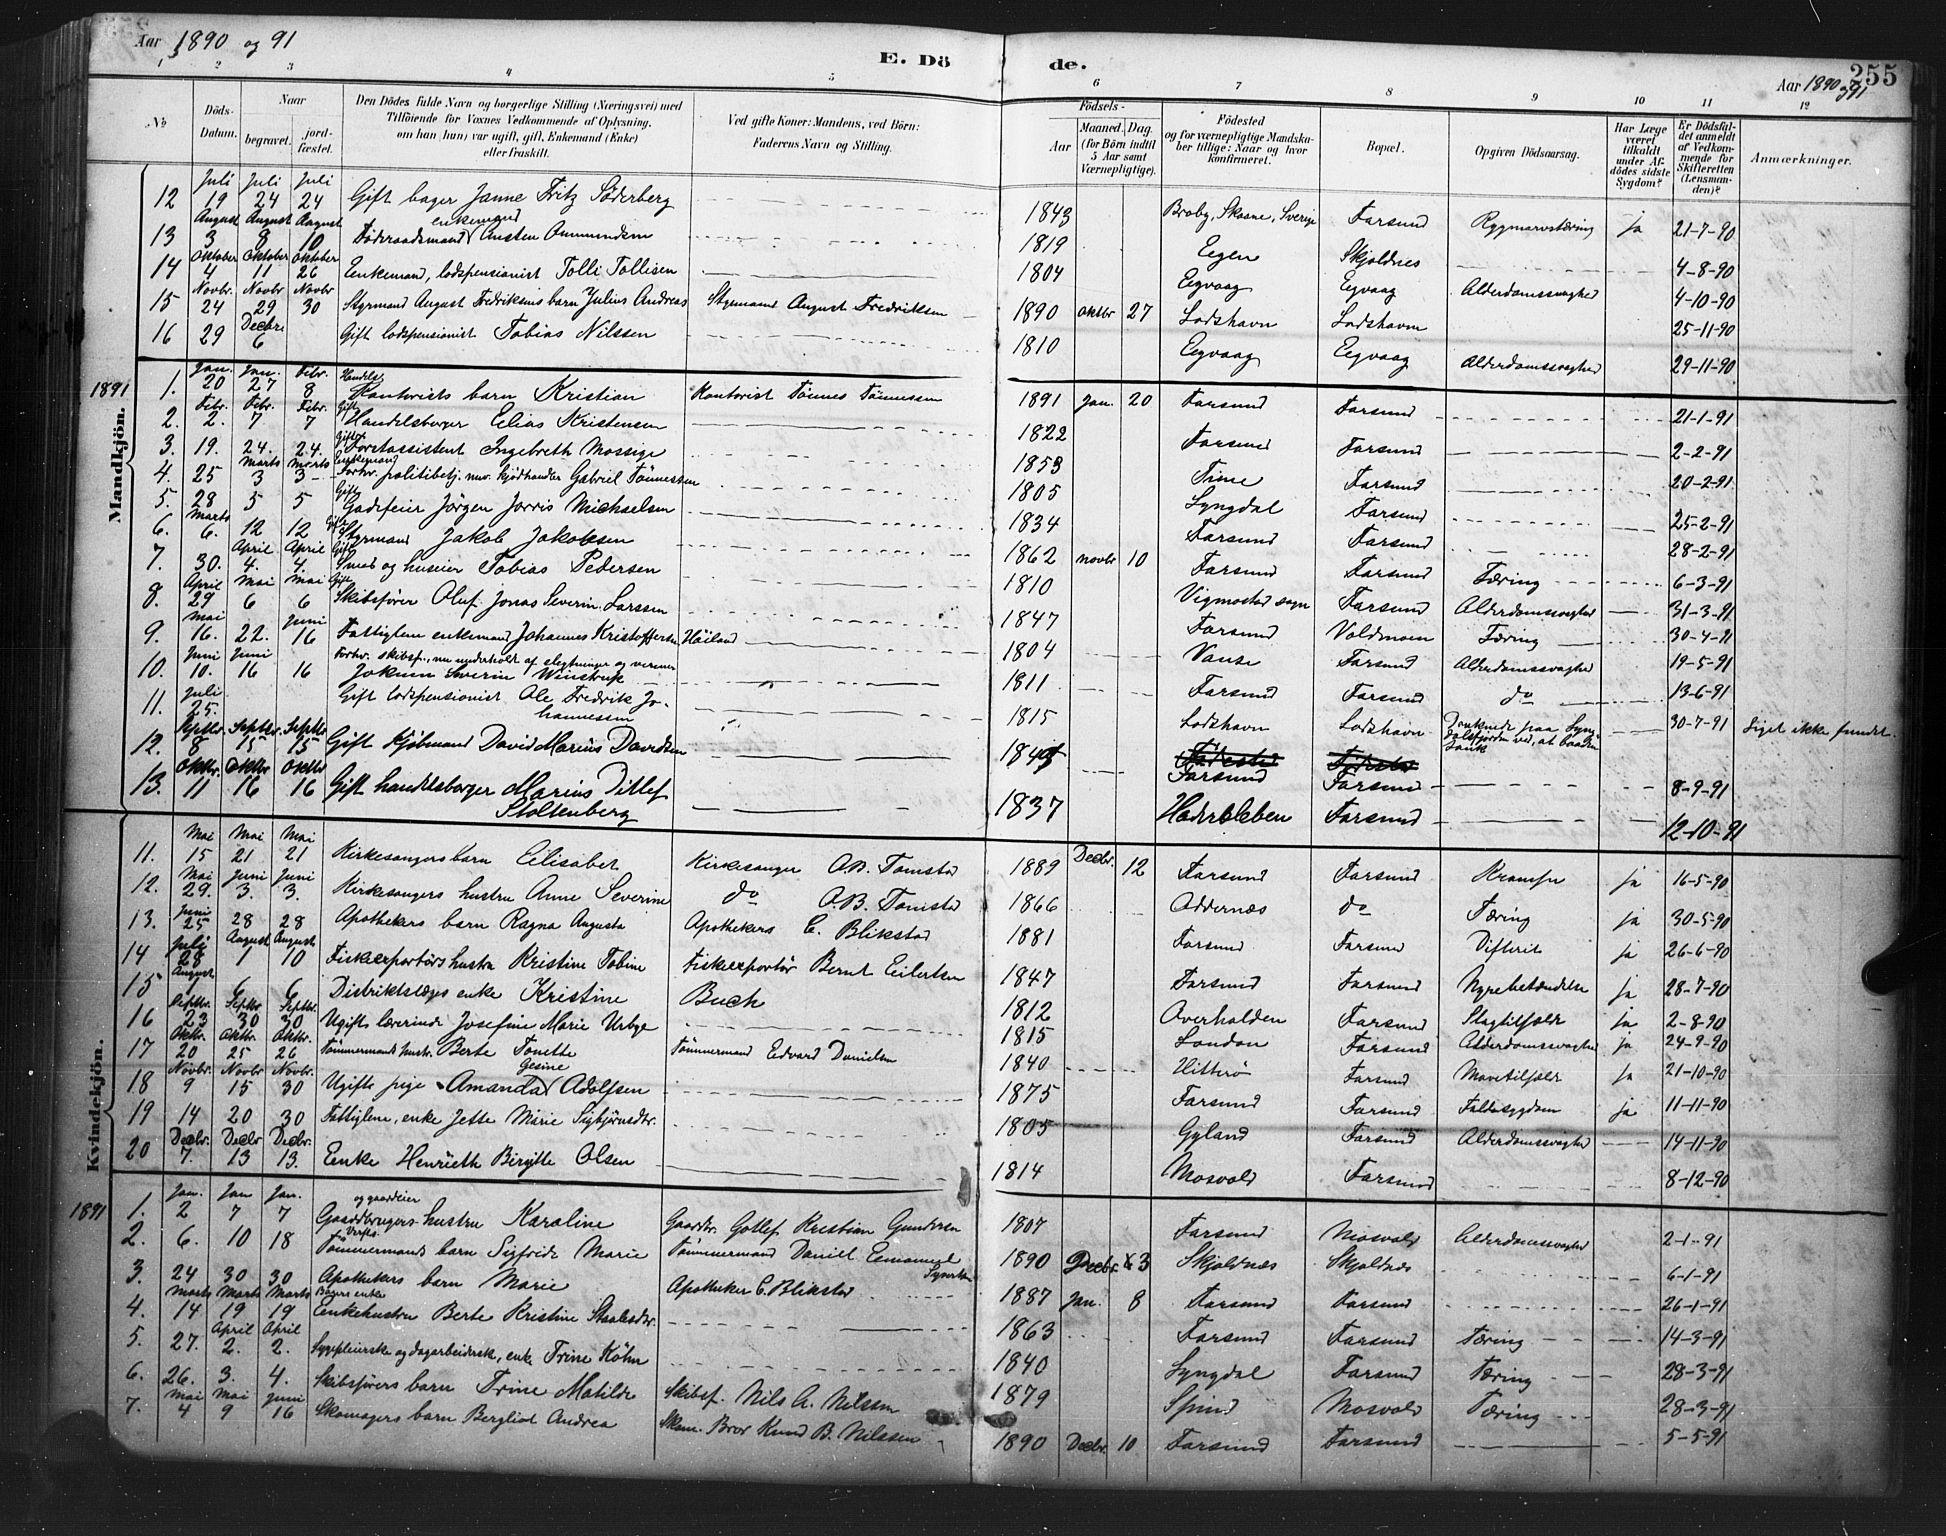 Aar 1890 og 91
E. Dö de.
Aar 1890 og 91
255
1 2 3 4 5 6 7 8 9 10 11 12
No
Döds-Datum.
Naar begravet. jordfæstet.
Den Dödes fulde Navn og borgerlige Stilling (Næringsvei) med Tilföiende for Voxnes Vedkommende af Oplysning, om han (hun) var ugift, gift, Enkemand (Enke) eller fraskilt.
Ved gifte Koner: Mandens, ved Börn: Faderens Navn og Stilling.
Födsels-
Aar
Maaned. Dag. (for Börn indtil 5 Aar samt Værnepligtige).
Födested og for værnepligtige Mandskaber tillige: Naar og hvor konfirmeret.
Bopæl.
Opgiven Dödsaarsag.
Har Læge været tilkaldt under Afdödes sidste Sygdom?
Er Dödsfaldet anmeldt af Vedkommende for Skifteretten (Lensmanden)?
Anmærkninger.
Mandkjön.
12 Juli 19 Juli 24 Juli 24 Gift bager Janne Fritz Söderberg 1843 Broby, Skaane, Sverige Farsund Rygmarvstæring ja 21-7-90
13 August 3 August 8 August 10 Föderaadsmand enkemand Austen Ommundsen 1819 Eegen Skjoldnes 4-8-90
14 Oktober 4 Oktober 11 Oktober 26 Enkemand, lodspensionist Tolli Tollisen 1804 Eegvaag Eegvaag Alderdomssvaghed 4-10-90
15 Novbr. 24 Novbr 29 Novbr 30 Styrmand August Fredriksens barn Julius Andreas Styrmand August Fredriksen 1890 Oktbr 27 Lodshavn Lodshavn 25-11-90
16 29 Decbr 6 Gift lodspensionist Tobias Nilssen 1810 Eegvaag Eegvaag Alderdomssvaghed 29-11-90
1891
1. Jan. 20 Jan. 27 Febr. 8 Handels Kontorists barn Kristian Kontorist Tönnes Tönnessen 1891 Jan. 20 Farsund Farsund 21-1-91
2. Febr. 2. Febr. 7 Febr. 7 Gift Handelsborger Elias Kristensen 1822 Farsund Farsund 2-2-91
3. 19. 24. 24. Gift Forstassistent Ingebreth Mossige 1853 Time Farsund 20-2-91
4. 25 Marts 3 Marts 3 Enkemand Forhv. politibetj. nuv. kjödhandler Gabriel Tönnessen 1805 Lyngdal Farsund 25-2-91
5. 28 5 5 Gift Gadfeier Jörgen Jorris Michaelsen 1834 Farsund Farsund 28-2-91
6. Marts 6. 12 12 Gift Styrmand Jakob Jakobsen 1862 Novbr 10 Farsund Farsund Tæring 6-3-91
7. 30. April 4. April 4. Gift Smed og huseier Tobias Pedersen 1810 Vigmostad sogn Farsund Alderdomssvaghed 31-3-91
8. April 29 Mai 6 Mai 6 Gift Skibsförer Oluf Jonas Severin Larssen 1847 Farsund Voldmoen Tæring 30-4-91
9. Mai 16. 22. Juni 16 Fattiglem enkemand Johannes Kristoffersen Höiland 1804 Vanse Farsund Alderdomssvaghed 19-5-91
10. Juni 10. Juni 16 16 Forhv. skibsf., nu underholdt af slegtninger og venner Jokum Severin Winstrup 1811 Farsund Farsund do 13-6-91
11. Juli 25. Gift lodspensionist Ole Fredrik Johannessen 1815 Lodshavn Lodshavn Druknede paa Lyngdalsfjorden ved, at baaden sank 30-7-91 Liget ikke fundet.
12. Septbr. 8 Septbr. 15 Septbr 15 Gift kjöbmand David Marius Davidsen Farsund Farsund 8-9-91
13. Oktbr. 11 Oktbr 16 Oktbr 16 Gift handelsborger Marius Ditlef Stoltenberg 1837 Hadersleben Farsund 12-10-91
Kvindekjön.
11. Mai 15 Mai 21 Mai 21 Kirkesangers barn Eilisabet Kirkesanger O.B. Tomstad 1889 Decbr. 12 Farsund Farsund Krampe ja 16-5-90
12. Mai 29. Juni 3. Juni 3. Kirkesangers hustru Anne Severine do O.B. Tomstad 1866 Oddernæs do Tæring ja 30-5-90
13. Juni 25 28 28 Apothekers barn Ragna Augusta Apothekers C. Blikstad 1881 Farsund Farsund Difterit ja 26-6-90
14 Juli 28 August 1 August 10 Fiskeexportörs hustru Kristine Tobine Fiskeexportör Bernt Eilertsen 1847 Farsund Farsund Nyrebetændelse ja 28-7-90
15 August 1 6 6 Distriktslæges enke Kristine Buch 1812 Overhalden Farsund Slagtilfælde ja 2-8-90
16 Septbr. 23 Septbr 30 Septbr. 30 Ugift lærerinde Josefine Marie Urbye 1815 London Farsund Alderdomssvaghed ja 24-9-90
17 Oktbr. 20 Oktbr. 25 Oktbr. 26 Tömmermands hustr. Berte Tonette Tömmermand Edvard Danielsen 1840 Hitterö Farsund Mavetilfælde ja 21-10-90
18 Novbr 9 Novbr. 15 Novbr. 30 Ugift pige Amanda Gesine Adolfsen 1875 Farsund Farsund Faldesygdom ja 11-11-90
19 14 20 30 Fattiglem, enke Jette Marie Sigbjörnsdtr. 1805 Gyland Farsund Alderdomssvaghed 14-11-90
20 Decbr. 7. Decbr 13 Decbr. 13. Enke Henrieth Bergitte Olsen 1814 Mosvold Farsund 8-12-90
1891
1. Jan. 2 Jan 7 Jan. 7 Gaardbrugers og gaardeier hustru Karoline Gaardbr. Gotlef Kristian Gundersen 1807 Farsund Mosvold Alderdomssvaghed 2-1-91
2. 6. 10 18 Verfts. Tömmermands barn Sigfride Marie Tömmermand Daniel Emanuel Syvertsen 1890 Decbr. 3 Skjoldnæs Skjoldnæs 6-1-91
3. 24 30 30 Apothekers barn Marie Apotheker C. Blikstad 1887 Jan. 8 Farsund Farsund 26-1-91
4. Marts 14 Marts 19 Marts 19 Bagers enke Enkehustru Berte Kristine Staalesdtr. 1863 Farsund Farsund Tæring 14-3-91
5. 27. April 2. April 2. Sypleierske og dagarbeidersk, enke Trine Köhn 1840 Lyngdal Farsund Tæring 28-3-91
6. 26. 3. 4. Skibsförers barn Trine Matilde Skibsf. Nils A. Nilssen 1879 Spind Mosvold Tæring 28-3-91
7. Mai 4 Mai 9 Juni 16 Skomagers barn Bergliot Andrea Skom. Bror Knud B. Nilssen 1890 Decbr. 10 Farsund Farsund 5-5-91